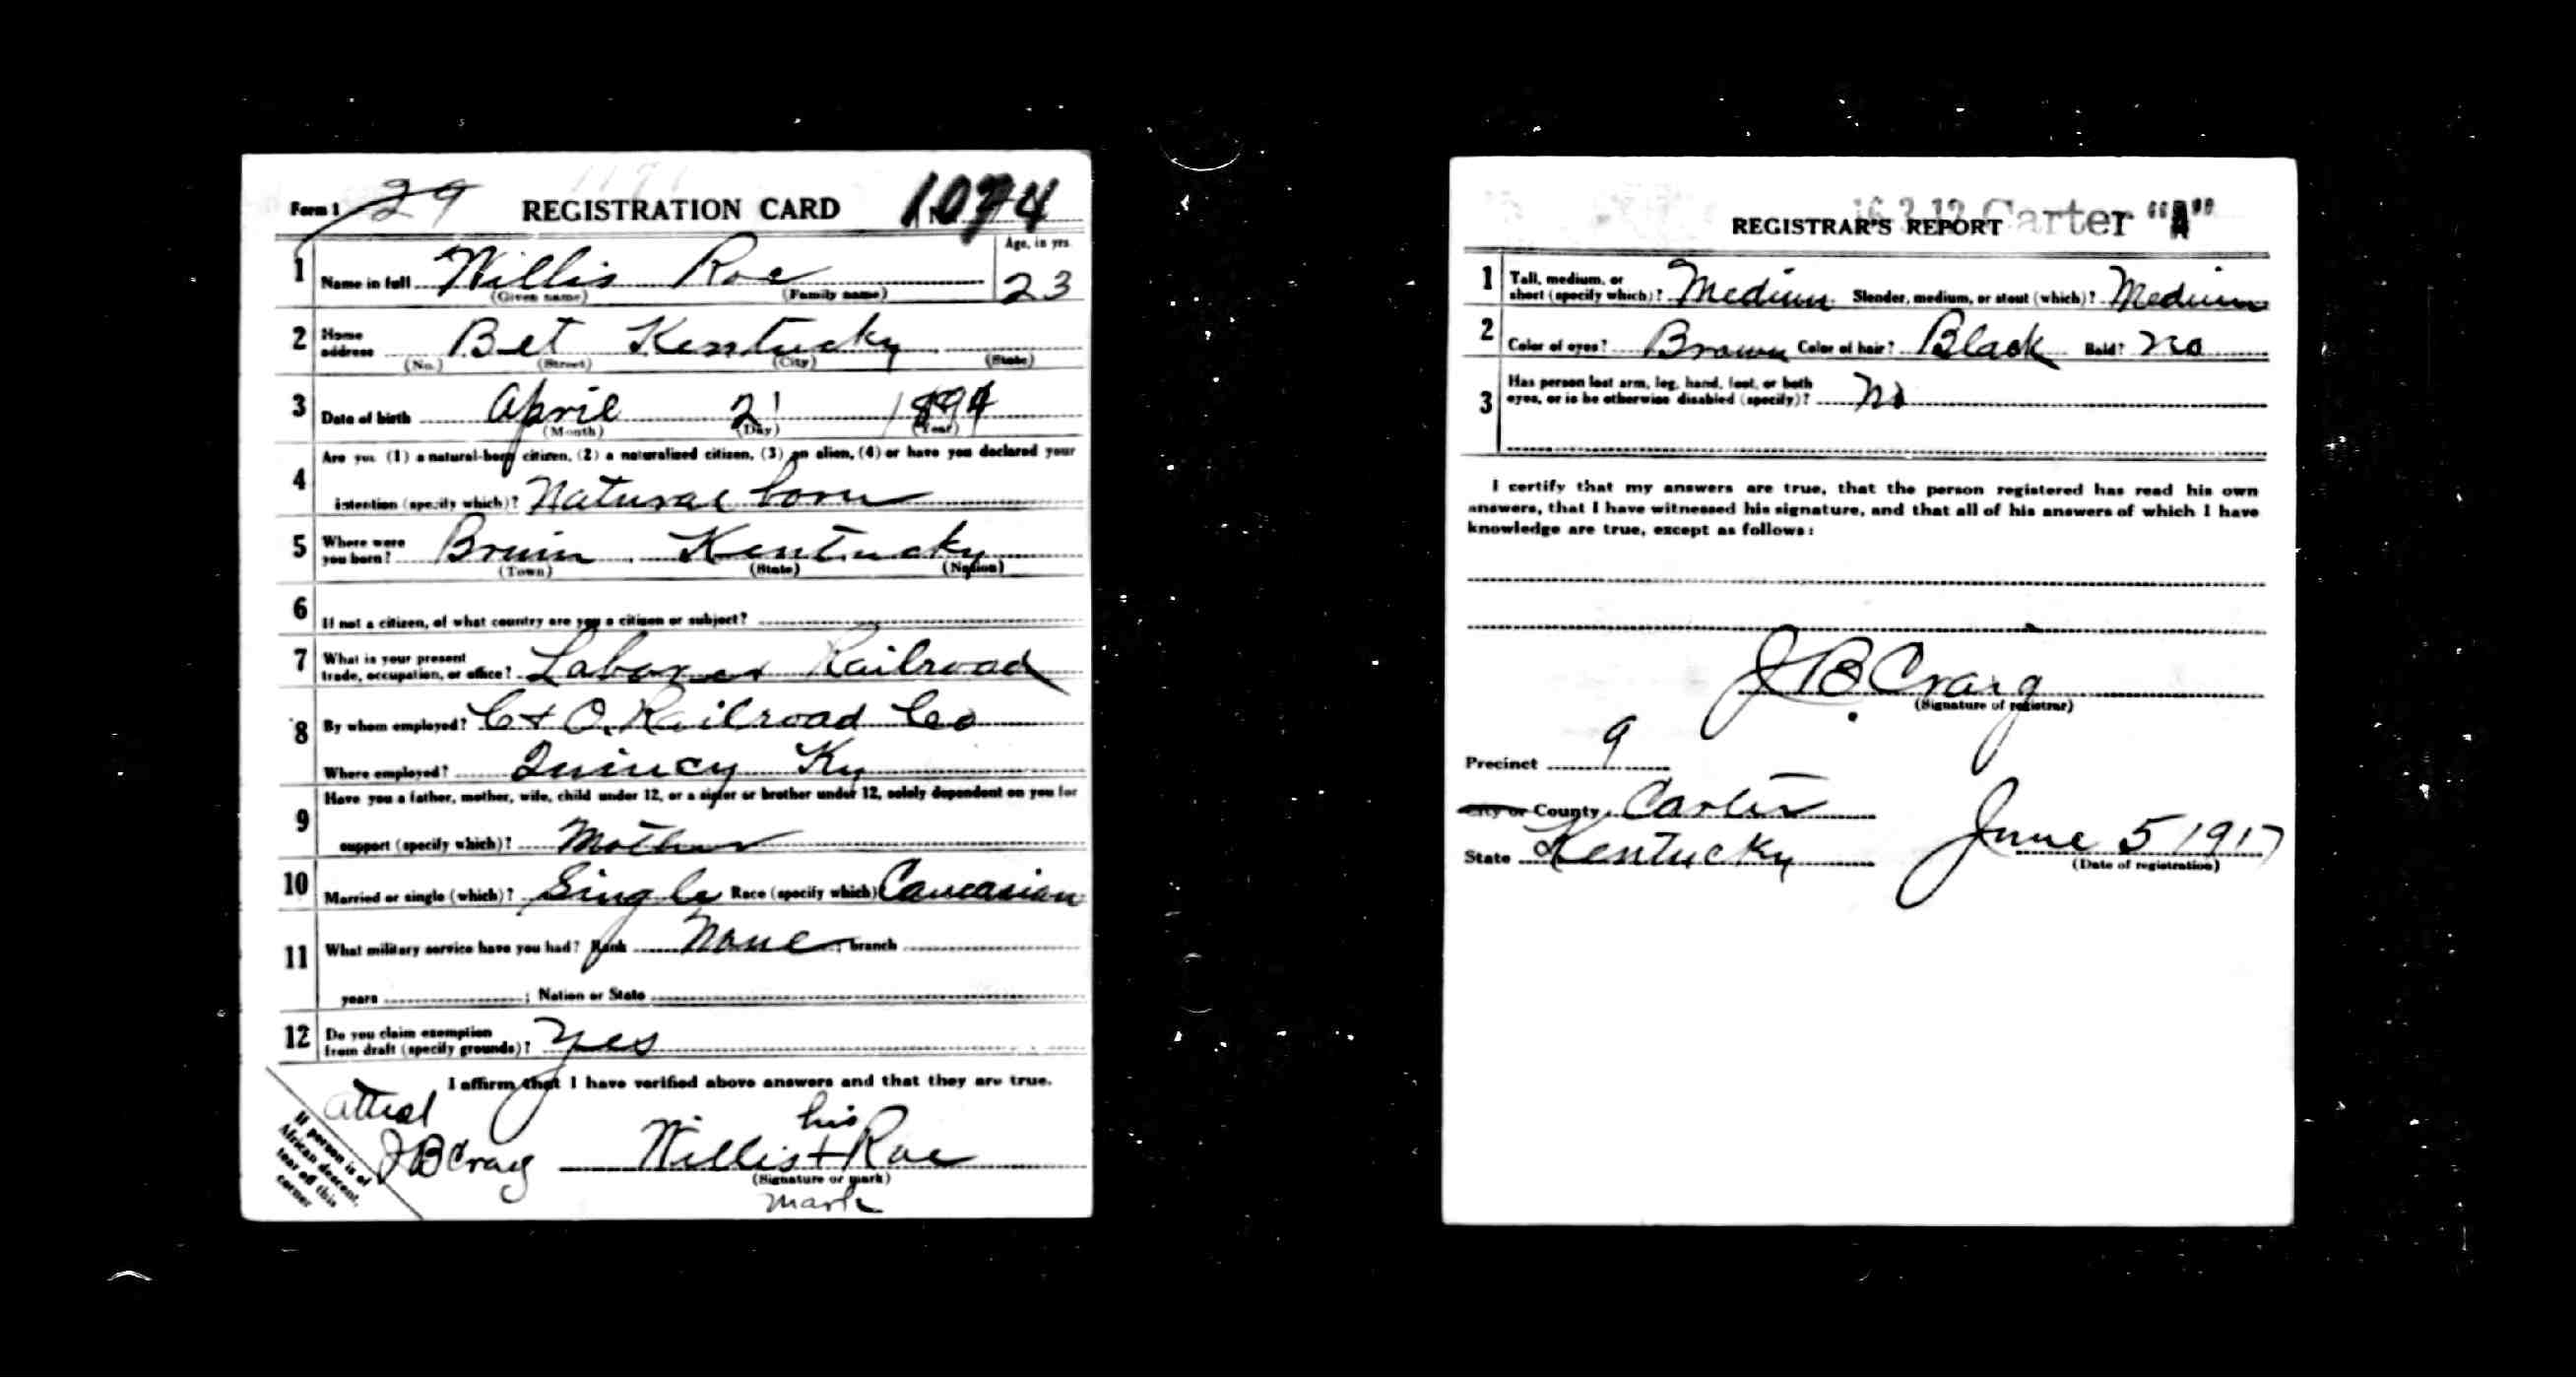 Form 1 29 REGISTRATION CARD No. 1074
1 Name in full Willis Roe Age, in yrs 23
(Given name) (Family name)
2 Home address Bet Kentucky
(No.) (Street) (City) (State)
3 Date of birth April 21 1894
(Month) (Day) (Year)
4 Are you (1) a natural-born citizen, (2) a naturalized citizen, (3) an alien, (4) or have you declared your
intention (specify which)? Natural born
5 Where were you born? Bruin Kentucky
(Town) (State) (Nation)
6 If not a citizen, of what country are you a citizen or subject?
7 What is your present trade, occupation, or office? Laborer Railroad
8 By whom employed? C + O. Railroad Co
Where employed? Quincy Ky
9 Have you a father, mother, wife, child under 12, or a sister or brother under 12, solely dependent on you for
support (specify which)? Mother
10 Married or single (which)? Single Race (specify which) Caucasian
11 What military service have you had? Rank None ; branch
years ; Nation or State
12 Do you claim exemption from draft (specify grounds)? Yes
I affirm that I have verified above answers and that they are true.
attest
his
J B Craig Willis + Roe
(Signature or mark)
mark
If person is of
African descent,
tear off this
corner
Carter "A"
REGISTRAR'S REPORT
1 Tall, medium, or short (specify which)? Medium Slender, medium, or stout (which)? Medium
2 Color of eyes? Brown Color of hair? Black Bald? No
3 Has person lost arm, leg, hand, foot, or both
eyes, or is he otherwise disabled (specify)? No
I certify that my answers are true, that the person registered has read his own
answers, that I have witnessed his signature, and that all of his answers of which I have
knowledge are true, except as follows:
J B Craig
(Signature of registrar)
Precinct 9
City or County Carter
State Kentucky June 5 1917
(Date of registration)